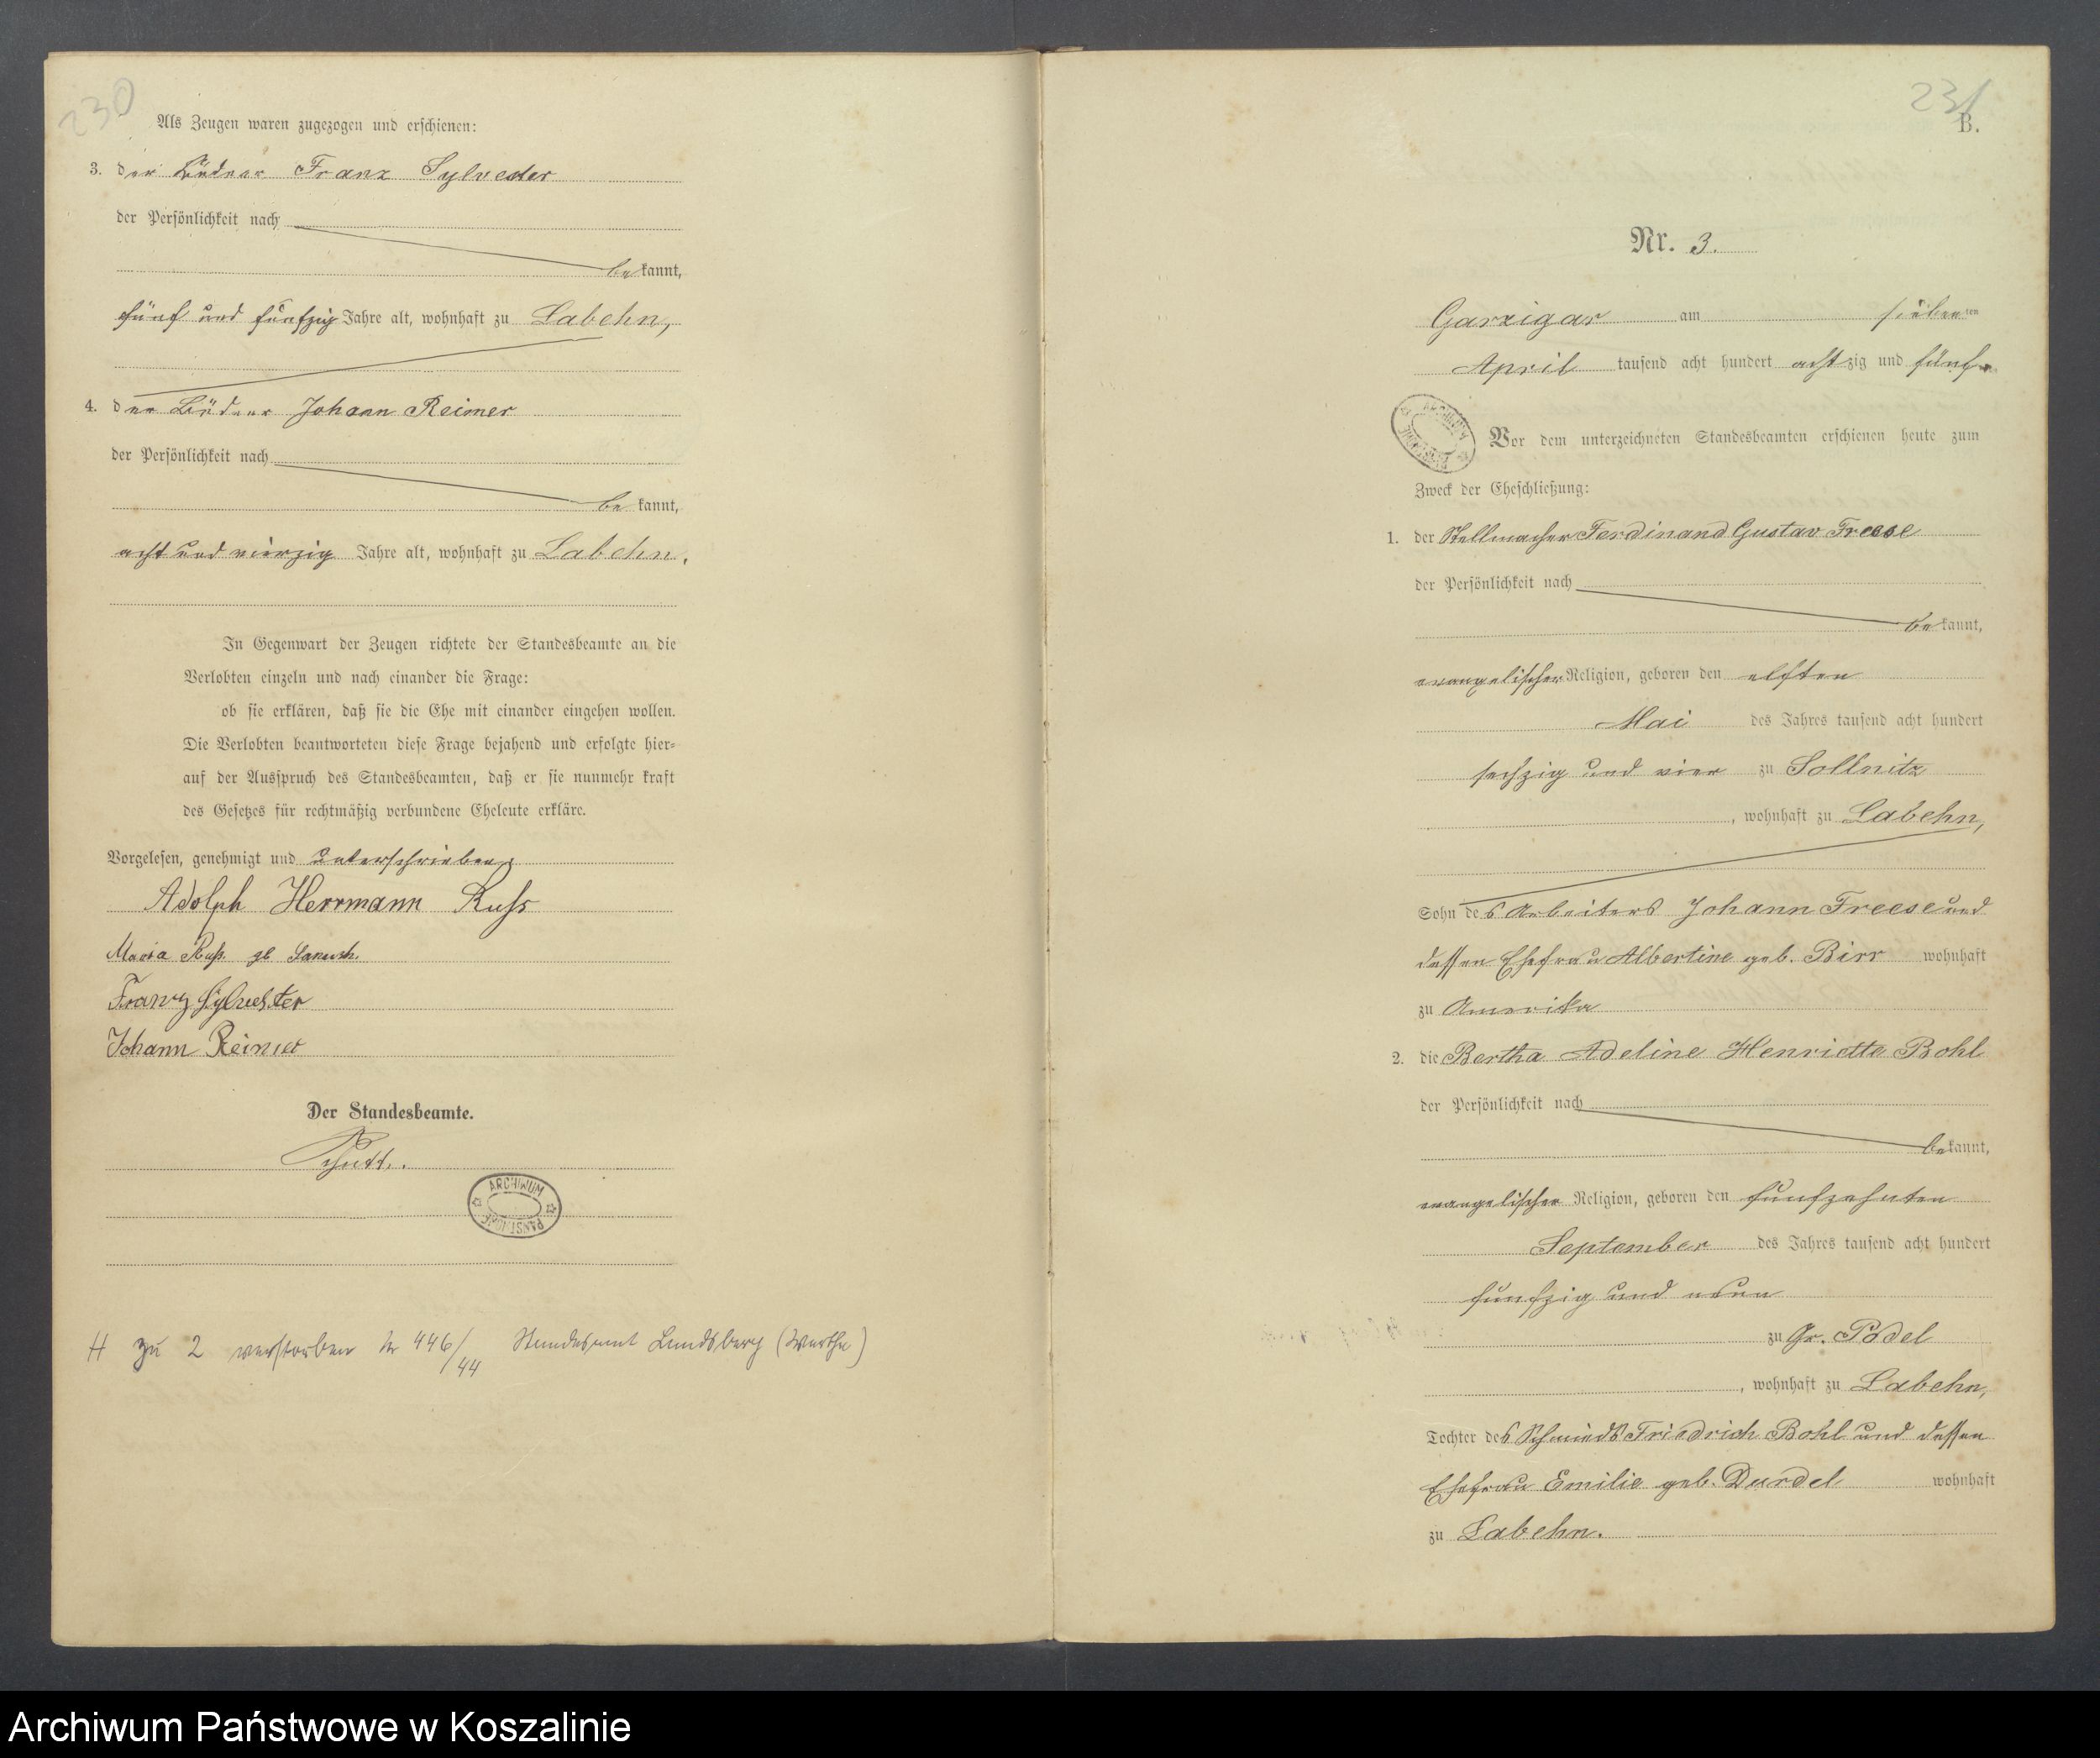 230
Als Zeugen waren zugezogen und erschienen:
3. der Büdner Franz Sylvester
der Persönlichkeit nach
bekannt,
fünf und fünfzig Jahre alt, wohnhaft zu Labehn,
4. der Büdner Johann Reimer
der Persönlichkeit nach
bekannt,
acht und vierzig Jahre alt, wohnhaft zu Labehn.
In Gegenwart der Zeugen richtete der Standesbeamte an die
Verlobten einzeln und nach einander die Frage:
ob sie erklären, daß sie die Ehe mit einander eingehen wollen.
Die Verlobten beantworteten diese Frage bejahend und erfolgte hier=
auf der Ausspruch des Standesbeamten, daß er sie nunmehr kraft
des Gesetzes für rechtmäßig verbundene Eheleute erkläre.
Vorgelesen, genehmigt und unterschrieben
Adolph Herrmann Russ
Maria Ruß. gb
Franz Sylvester
Johann Reimer
Der Standesbeamte.
ARCHIWUM PAŃSTWOWE
H zu 2 verstorben Nr 446/44 Standesamt Landsberg (Warthe)
231
B.
Nr. 3.
Garzigar am siebenten
April tausend acht hundert achtzig und fünf
ARCHIWUM PAŃSTWOWE
Vor dem unterzeichneten Standesbeamten erschienen heute zum
Zweck der Eheschließung:
1. der Stellmacher Ferdinand Gustav Freese
der Persönlichkeit nach
bekannt,
evangelischer Religion, geboren den elften
Mai des Jahres tausend acht hundert
sechzig und vier zu Sollnitz
, wohnhaft zu Labehn,
Sohn des Arbeiters Johann Freese und
dessen Ehefrau Albertine geb. Birr wohnhaft
zu Amerika
2. die Bertha Adeline Henriette Bohl
der Persönlichkeit nach
bekannt,
evangelischer Religion, geboren den fünfzehnten
September des Jahres tausend acht hundert
fünfzig und neun
zu Gr. Podel
, wohnhaft zu Labehn,
Tochter des Schmieds Friedrich Bohl und dessen
Ehefrau Emilie geb. Durdel wohnhaft
zu Labehn.
Archiwum Państwowe w Koszalinie